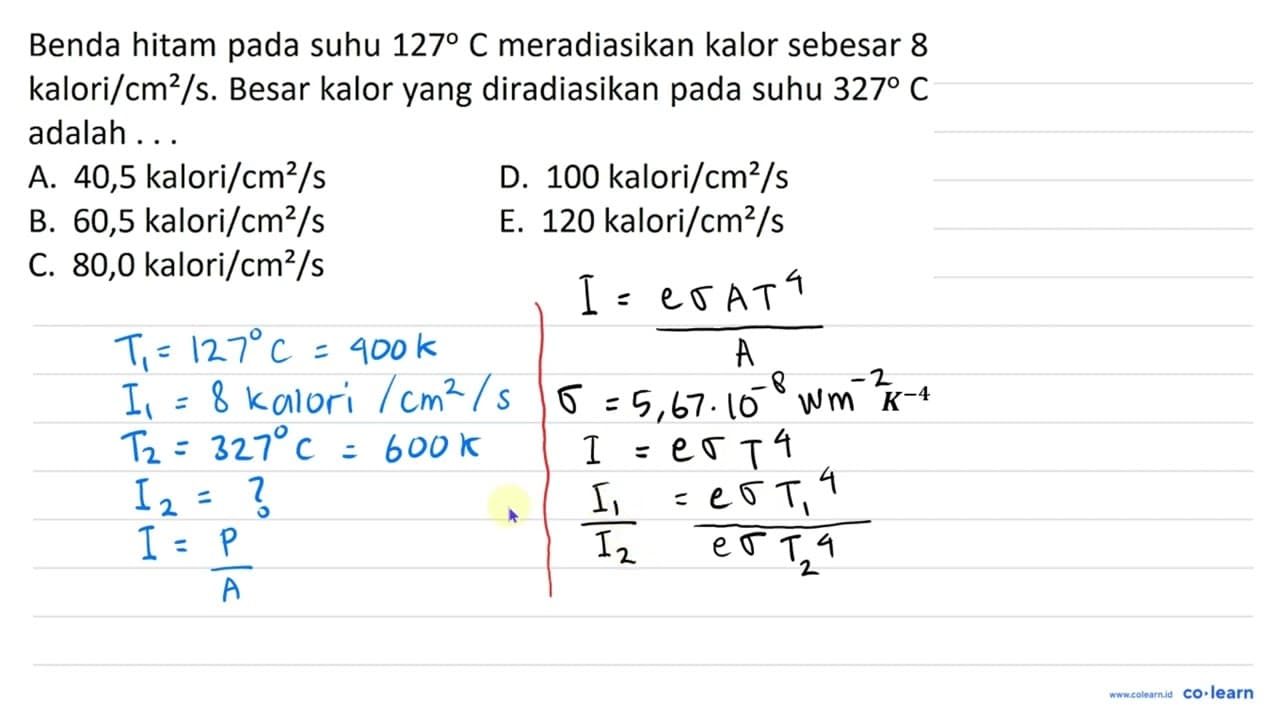 Benda hitam pada suhu 127° C meradiasikan kalor sebesar 8
kalori/cm²/s. Besar kalor yang diradiasikan pada suhu 327° C
adalah . . .
A. 40,5 kalori/cm²/s
D. 100 kalori/cm²/s
B. 60,5 kalori/cm²/s
E. 120 kalori/cm²/s
C. 80,0 kalori/cm²/s
T₁ = 127°C = 400 k
I₁ = 8 kalori /cm²/s
T₂ = 327°C = 600 k
I₂ = ?
I = P
A
I = eσAT⁴
A
σ = 5,67.10⁻⁸ Wm⁻² K⁻⁴
I = eσT⁴
I₁ = eσT₁⁴
I₂ eσT₂⁴
www.colearn.id co·learn